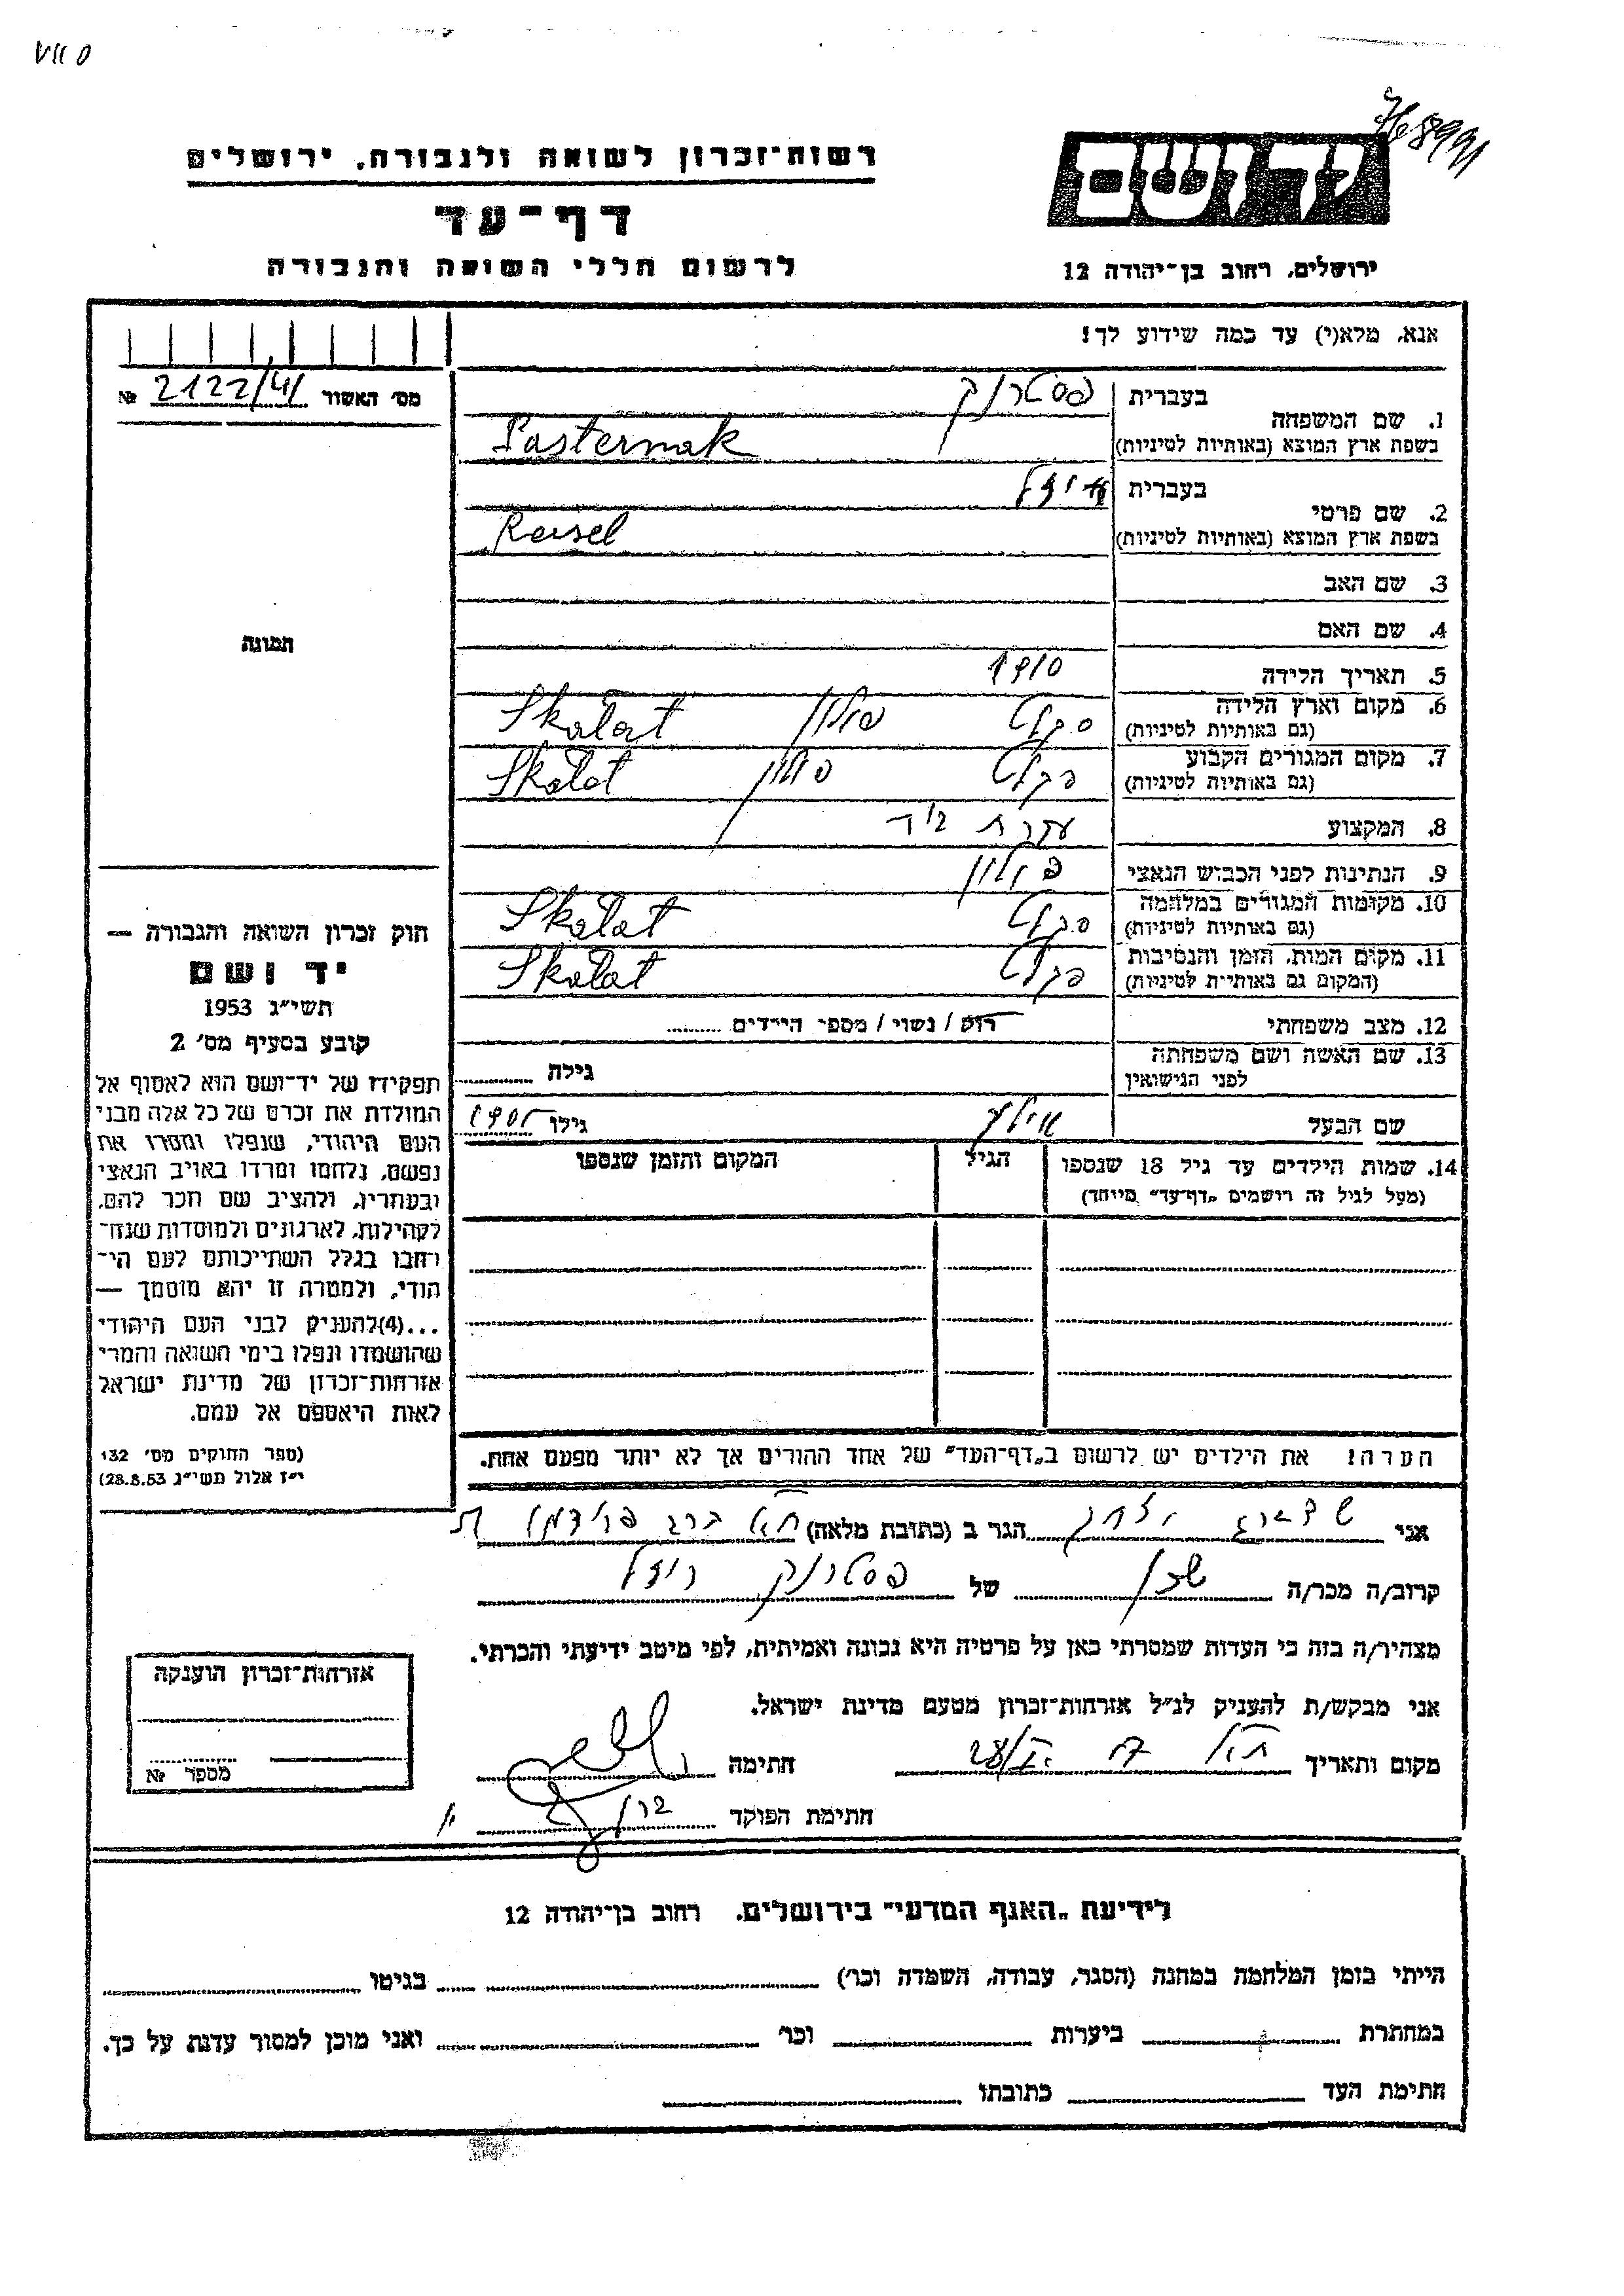 רשות־זכרון לשואה ולגבורה, ירושלים
דף־עד
לרשום חללי השואה והגבורה
יד ושם
ירושלים, רחוב בן־יהודה 12
אנא, מלא(י) עד כמה שידוע לך!
מס׳ האשור № 2122/41
1. שם המשפחה
בעברית פסטרנק
בשפת ארץ המוצא (באותיות לטיניות) Pasternak
2. שם פרטי
בעברית
בשפת ארץ המוצא (באותיות לטיניות) Reisel
3. שם האב
4. שם האם
5. תאריך הלידה 1910
6. מקום וארץ הלידה (גם באותיות לטיניות) סקלט פולין Skalat
7. מקום המגורים הקבוע (גם באותיות לטיניות) סקלט פולין Skalat
8. המקצוע עקרת בית
9. הנתינות לפני הכבוש הנאצי פולין
10. מקומות המגורים במלחמה (גם באותיות לטיניות) סקלט Skalat
11. מקום המות, הזמן והנסיבות (המקום גם באותיות לטיניות) סקלט Skalat
12. מצב משפחתי רוק / נשוי / מספר הילדים
13. שם האשה ושם משפחתה לפני הנישואין גילה
שם הבעל גילו 1905
14. שמות הילדים עד גיל 18 שנספו (מעל לגיל זה רושמים „דף־עד" מיוחד) הגיל המקום והזמן שנספו
הערה! את הילדים יש לרשום ב„דף־העד" של אחד ההורים אך לא יותר מפעם אחת.
תמונה
חוק זכרון השואה והגבורה —
יד ושם
תשי״ג 1953
קובע בסעיף מס׳ 2
תפקידו של יד־ושם הוא לאסוף אל
המולדת את זכרם של כל אלה מבני
העם היהודי, שנפלו ומסרו את
נפשם, נלחמו ומרדו באויב הנאצי
ובעוזריו, ולהציב שם וזכר להם,
לקהילות, לארגונים ולמוסדות שנח־
רבו בגלל השתייכותם לעם הי־
הודי, ולמטרה זו יהא מוסמך —
...(4) להעניק לבני העם היהודי
שהושמדו ונפלו בימי השואה והמרי
אזרחות־זכרון של מדינת ישראל
לאות היאספם אל עמם.
(ספר החוקים מס׳ 132
י״ז אלול תשי״ג 28.8.53)
אני יצחק הגר ב (כתובת מלאה)
קרוב/ה מכר/ה שכן של פסטרנק רייזל
מצהיר/ה בזה כי העדות שמסרתי כאן על פרטיה היא נכונה ואמיתית, לפי מיטב ידיעתי והכרתי.
אני מבקש/ת להעניק לנ״ל אזרחות־זכרון מטעם מדינת ישראל.
מקום ותאריך חתימה
חתימת הפוקד
אזרחות־זכרון הוענקה
מספר №
לידיעת „האגף המדעי" בירושלים, רחוב בן־יהודה 12
הייתי בזמן המלחמה במחנה (הסגר, עבודה, השמדה וכו׳) בגיטו
במחתרת ביערות וכו׳ ואני מוכן למסור עדות על כך.
חתימת העד כתובתו